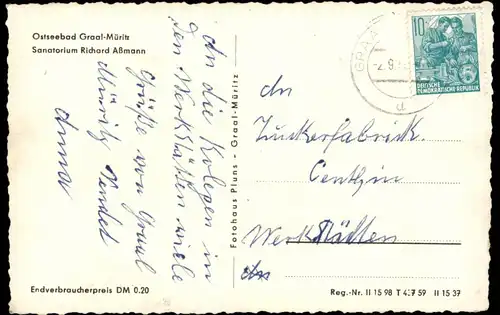 Ostseebad Graal-Müritz
Sanatorium Richard Aßmann
An die Kolegen in
den Werkstätten viele
Grüße von Graal
Müritz sendet
Anna
Endverbraucherpreis DM 0.20
Fotohaus Pluns - Graal-Müritz
10
DEUTSCHE
DEMOKRATISCHE REPUBLIK
An
Zuckerfabrick
Genthin
Werkstädten
Reg.-Nr. II 15 98 T 437 59 II 15 37